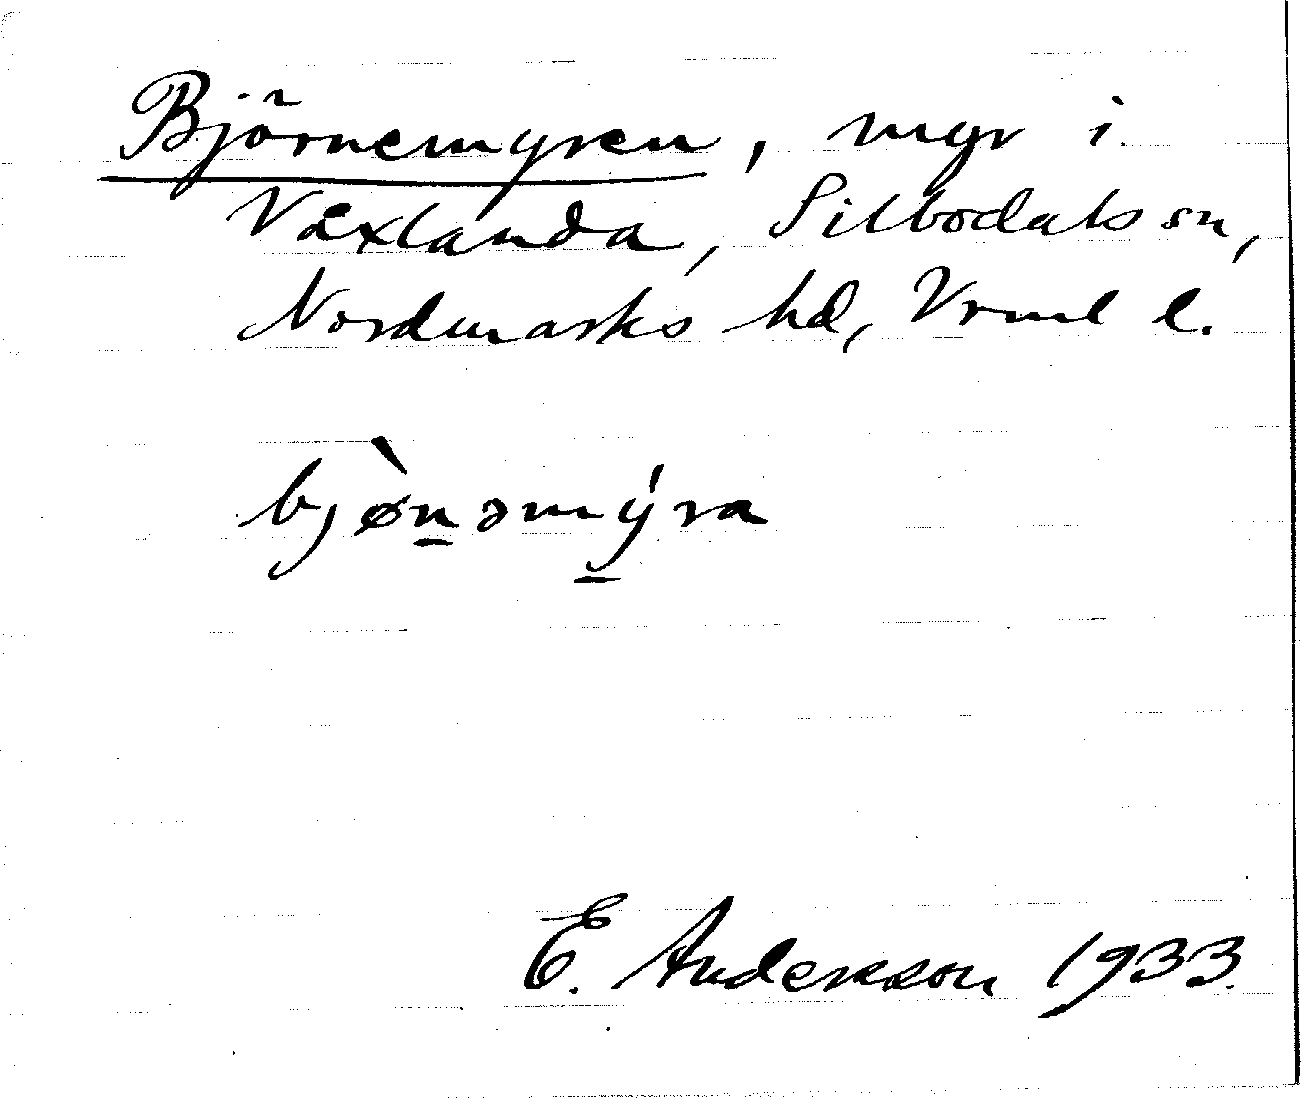 Björnemyren, myr i
Växlanda, Silbodals sn,
Nordmarks hd, Vrml l.
bjø̀n̲əmý̲ra
E. Andersson 1933.